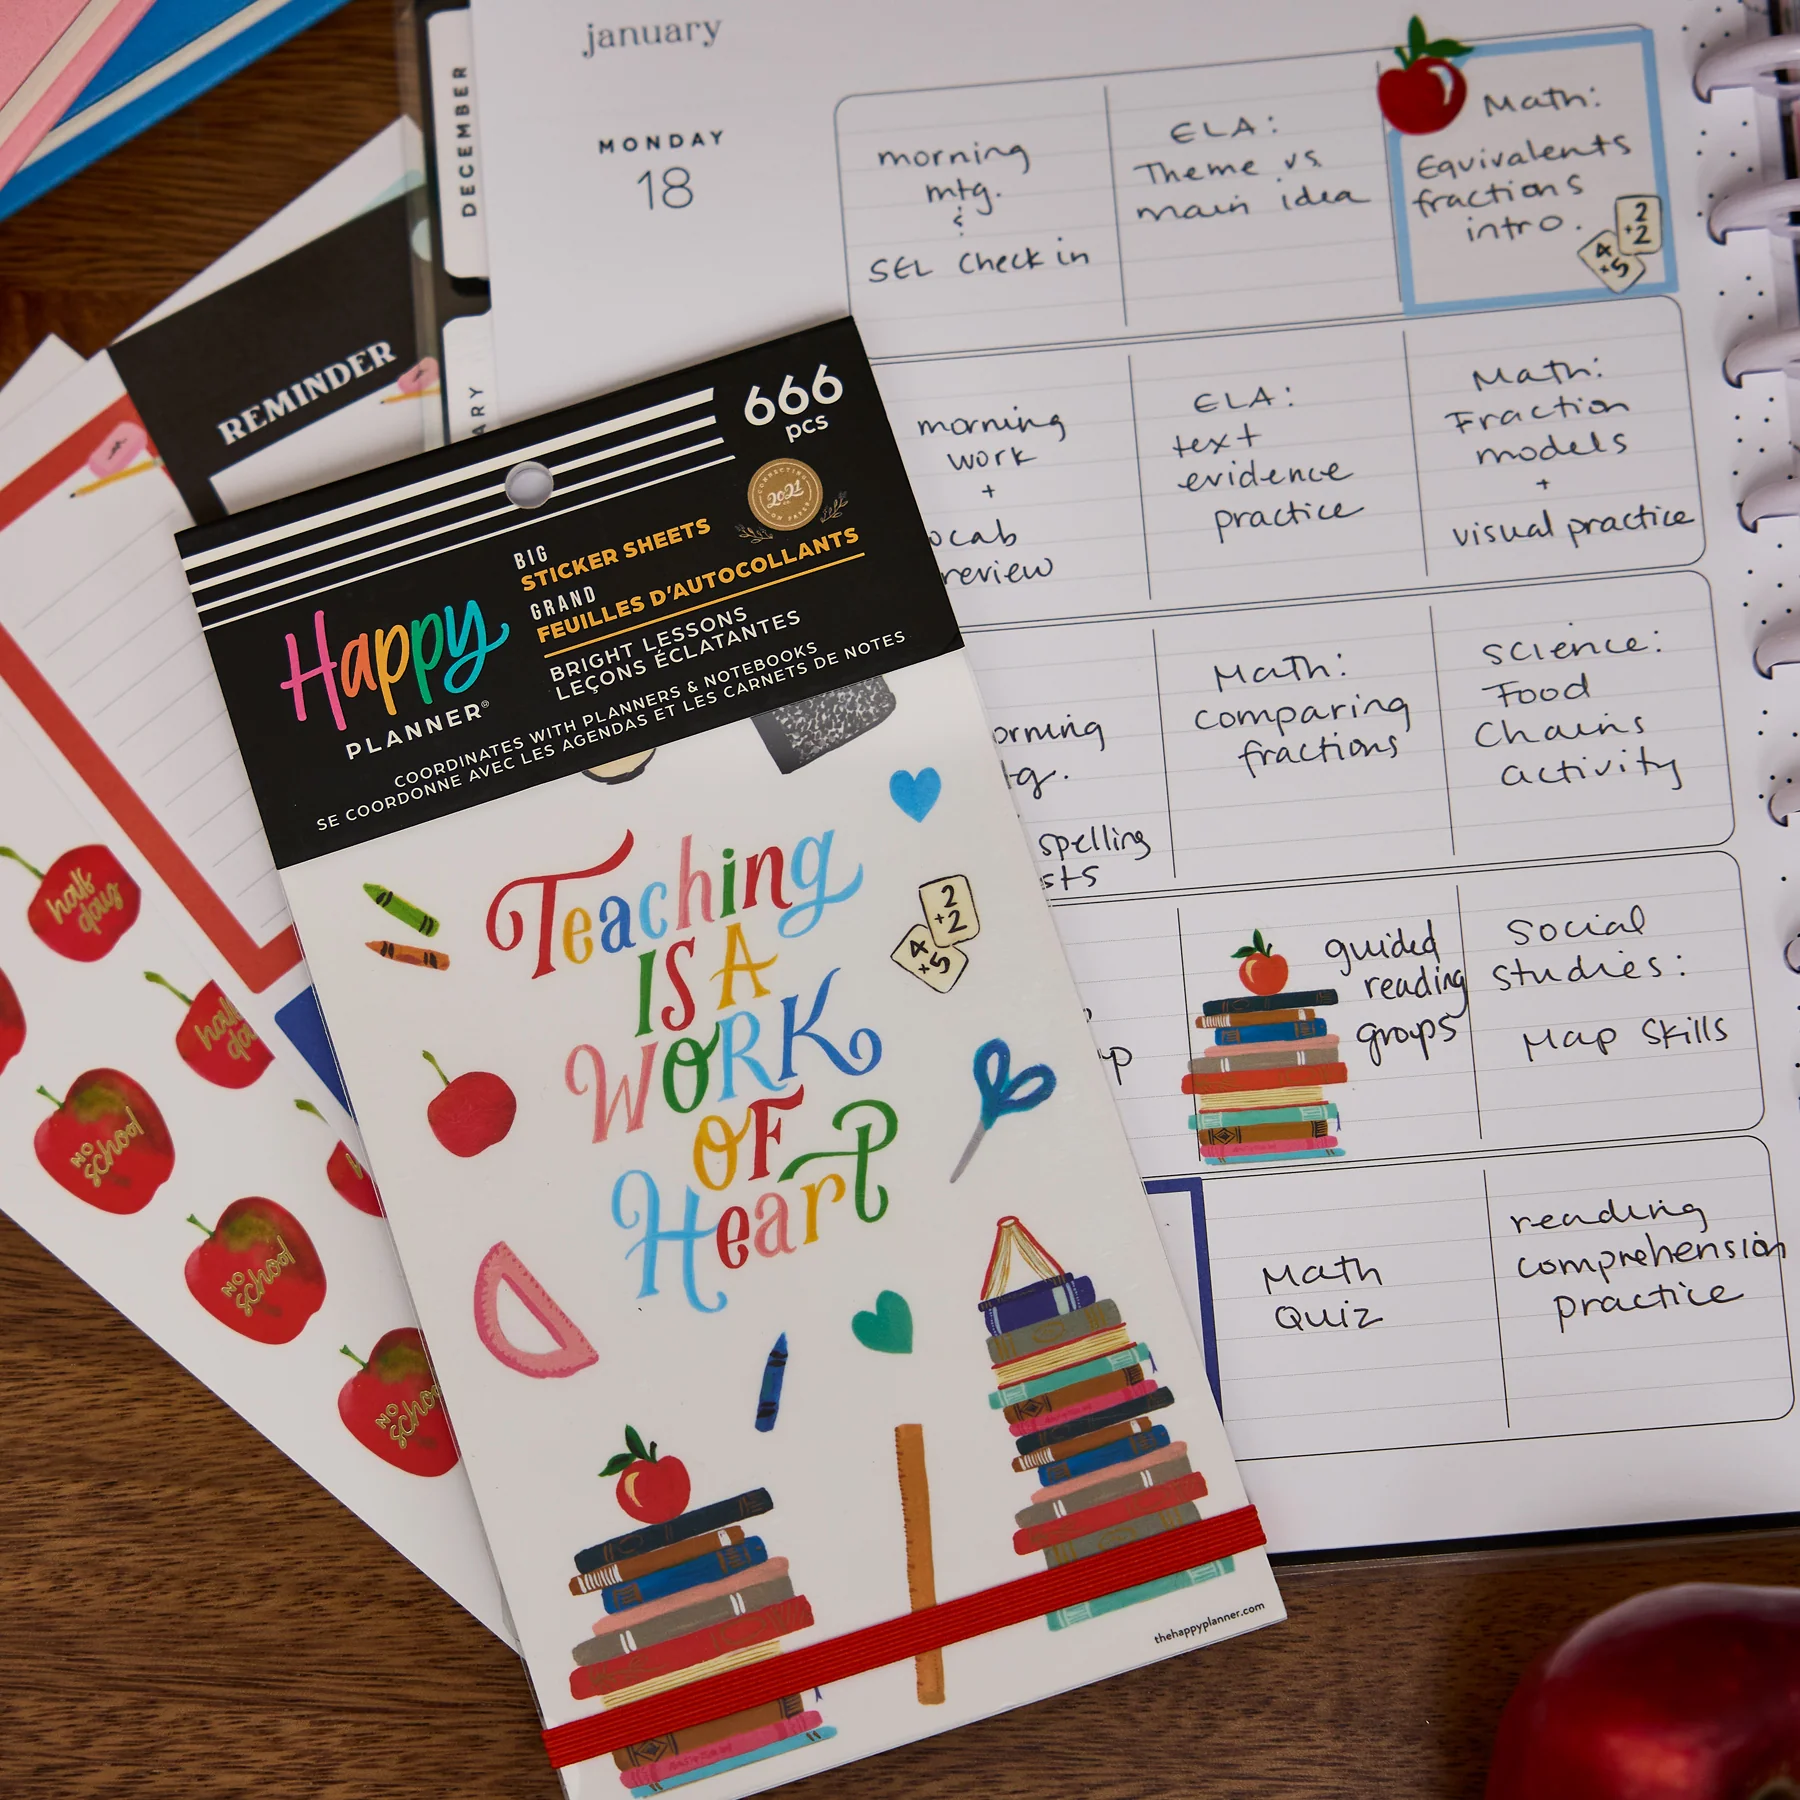 january
DECEMBER
MONDAY
18
morning
mtg.
&
SEL Check in
ELA:
Theme vs.
main idea
Math:
Equivalents
fractions
intro.
2
+2
4
+5
morning
work
+
review
ELA:
text
evidence
practice
Math:
Fraction
models
+
visual practice
spelling
Math:
comparing
fractions
Science:
Food
Chains
activity
guided
reading
groups
Social
Studies:
Map Skills
Math
Quiz
reading
comprehension
practice
REMINDER
666
pcs
CONNECTING
2021
ON PAPER
BIG
STICKER SHEETS
GRAND
FEUILLES D'AUTOCOLLANTS
BRIGHT LESSONS
LEÇONS ÉCLATANTES
Happy
PLANNER®
COORDINATES WITH PLANNERS & NOTEBOOKS
SE COORDONNE AVEC LES AGENDAS ET LES CARNETS DE NOTES
Teaching
IS A
WORK
OF
Heart
2
+2
4
+5
thehappyplanner.com
half
day
half
day
NO
School
NO
School
NO
School